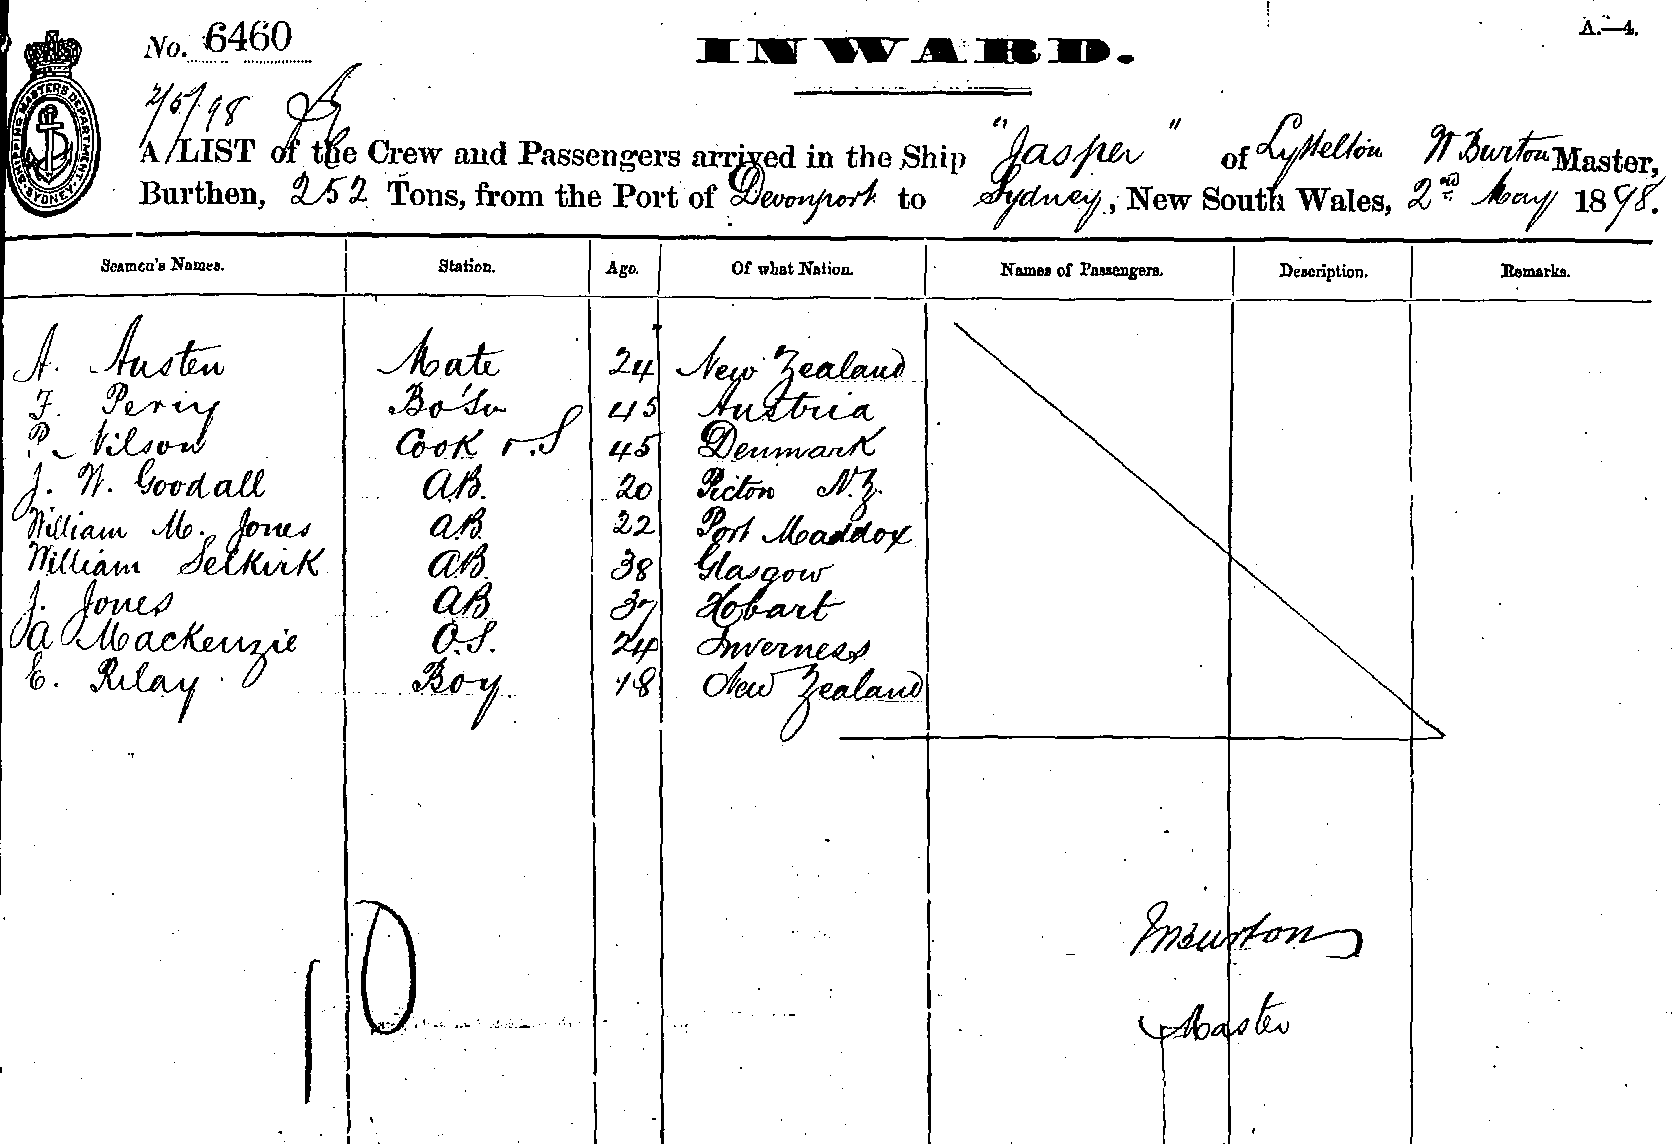 No. 6460
INWARD.
A.—4.
2/5/98
A LIST of the Crew and Passengers arrived in the Ship "Jasper" of Lyttelton W Burton Master,
Burthen, 252 Tons, from the Port of Devonport to Sydney, New South Wales, 2nd May 1898.
SHIPPING MASTERS DEPARTMENT SYDNEY
Seamen's Names. Station. Age. Of what Nation. Names of Passengers. Description. Remarks.
A. Austen Mate 24 New Zealand
F. Periy Bo'sn 45 Austria
P. Nilson Cook & S 45 Denmark
J. W. Goodall AB. 20 Picton N.Z.
William M. Jones AB 22 Port Maddox
William Selkirk AB 38 Glasgow
J. Jones AB 37 Hobart
A Mackenzie O.S. 24 Inverness
E. Rilay Boy 18 New Zealand
10
WBurton
Master